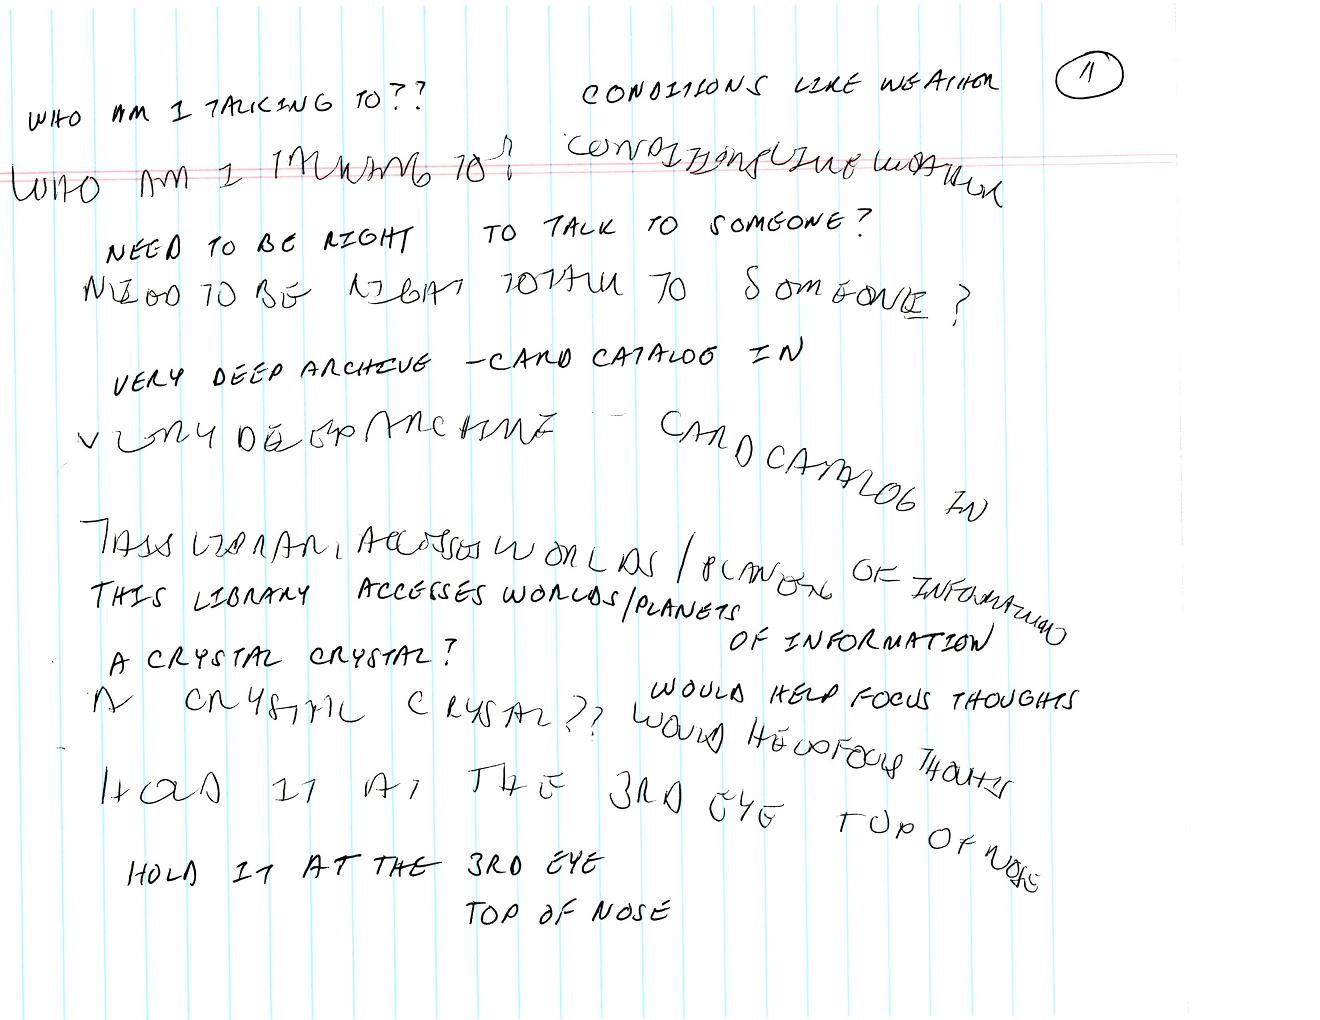 WHO AM I TALKING TO?? CONDITIONS LIKE WEATHER 11
WHO AM I TALKING TO? CONDITIONS LIKE WEATHER
NEED TO BE RIGHT TO TALK TO SOMEONE?
NEED TO BE RIGHT TO TALK TO SOMEONE?
VERY DEEP ARCHIVE - CARD CATALOG IN
VERY DEEP ARCHIVE - CARD CATALOG IN
THIS LIBRARY ACCESSES WORLDS / PLANETS OF INFORMATION
THIS LIBRARY ACCESSES WORLDS/PLANETS
OF INFORMATION
A CRYSTAL CRYSTAL?
WOULD HELP FOCUS THOUGHTS
A CRYSTAL CRYSTAL?? WOULD HELP FOCUS THOUGHTS
HOLD IT AT THE 3RD EYE TOP OF NOSE
HOLD IT AT THE 3RD EYE
TOP OF NOSE